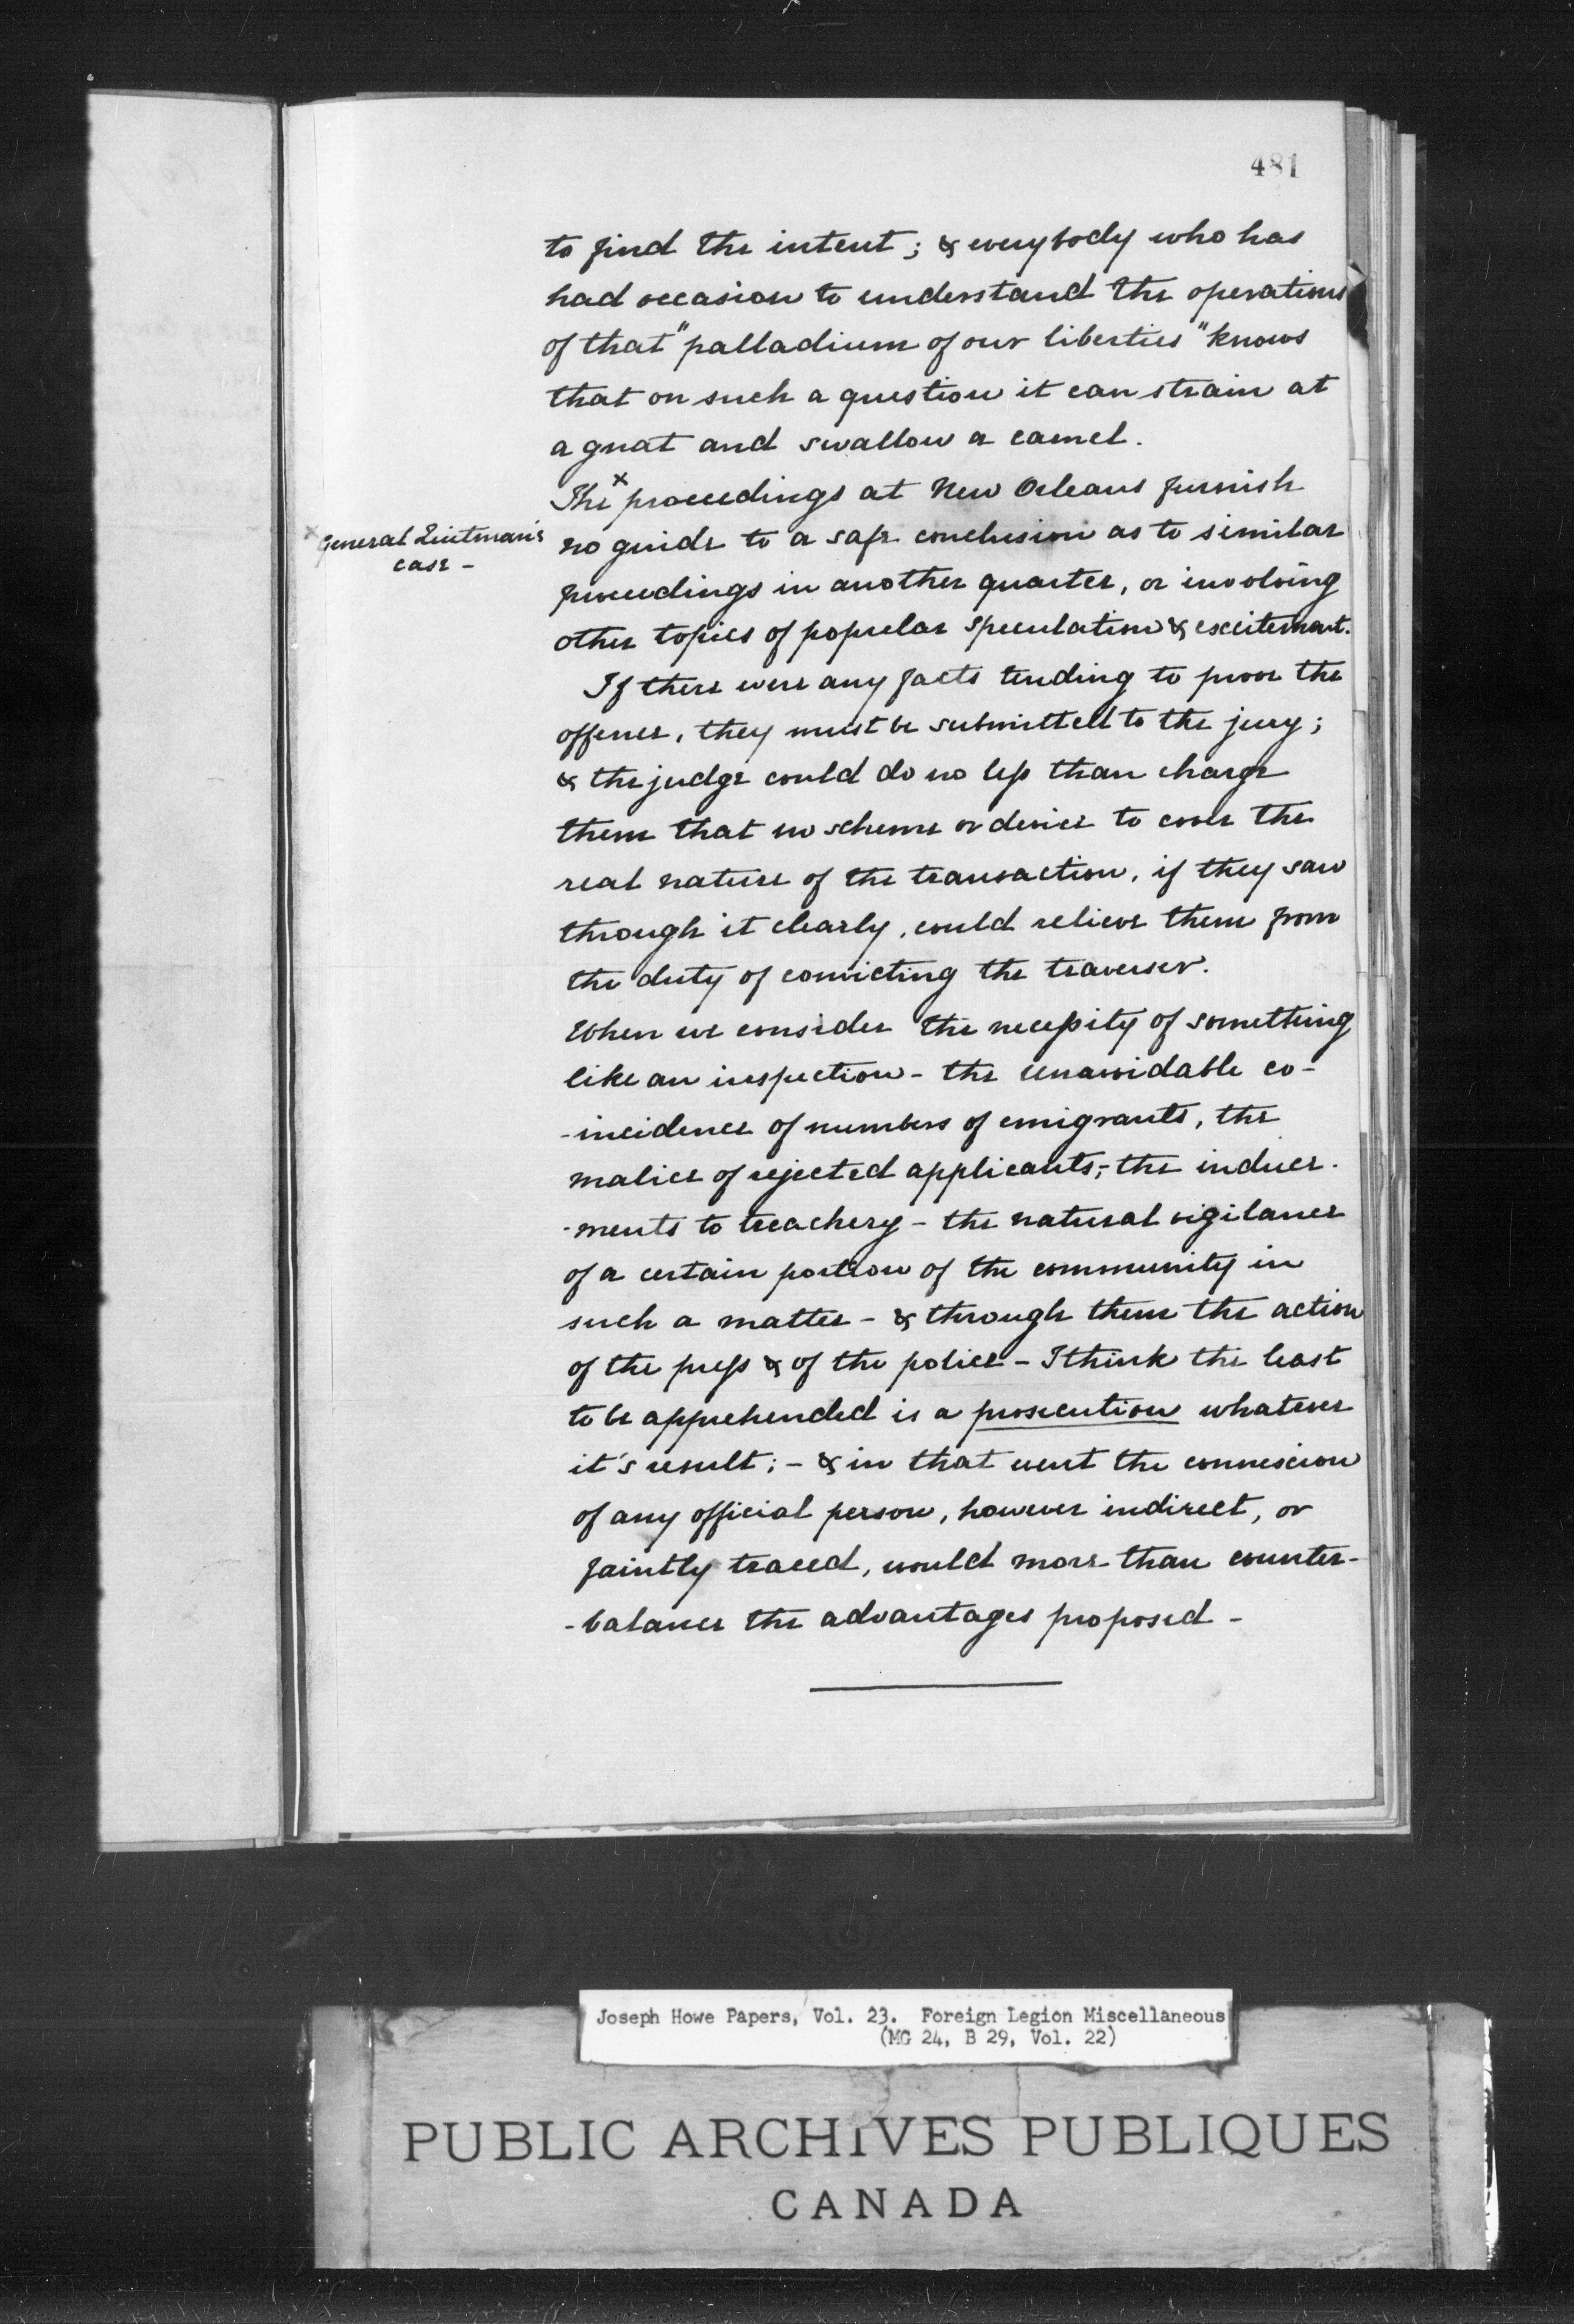 481
to find the intent; & everybody who has
had occasion to understand the operations
of that "palladium of our liberties" knows
that on such a question it can strain at
a gnat and swallow a camel.
The x proceedings at New Orleans furnish
x General Quitman's
case -
no guide to a safe conclusion as to similar
proceedings in another quarter, or involving
other topics of popular speculation & excitement.
If there were any facts tending to prove the
offence, they must be submitted to the jury;
& the judge could do no less than charge
them that no scheme or device to cover the
real nature of the transaction, if they saw
through it clearly, could relieve them from
the duty of convicting the traverser.
When we consider the necessity of something
like an inspection - the unavoidable co-
-incidence of numbers of emigrants, the
malice of rejected applicants; - the induce-
-ments to treachery - the natural vigilance
of a certain portion of the community in
such a matter - & through them the action
of the press & of the police - I think the least
to be apprehended is a prosecution whatever
it's result; - & in that event the connexion
of any official person, however indirect, or
faintly traced, would more than counter-
-balance the advantages proposed -
Joseph Howe Papers, Vol. 23. Foreign Legion Miscellaneous
(MG 24, B 29, Vol. 22)
PUBLIC ARCHIVES PUBLIQUES
CANADA